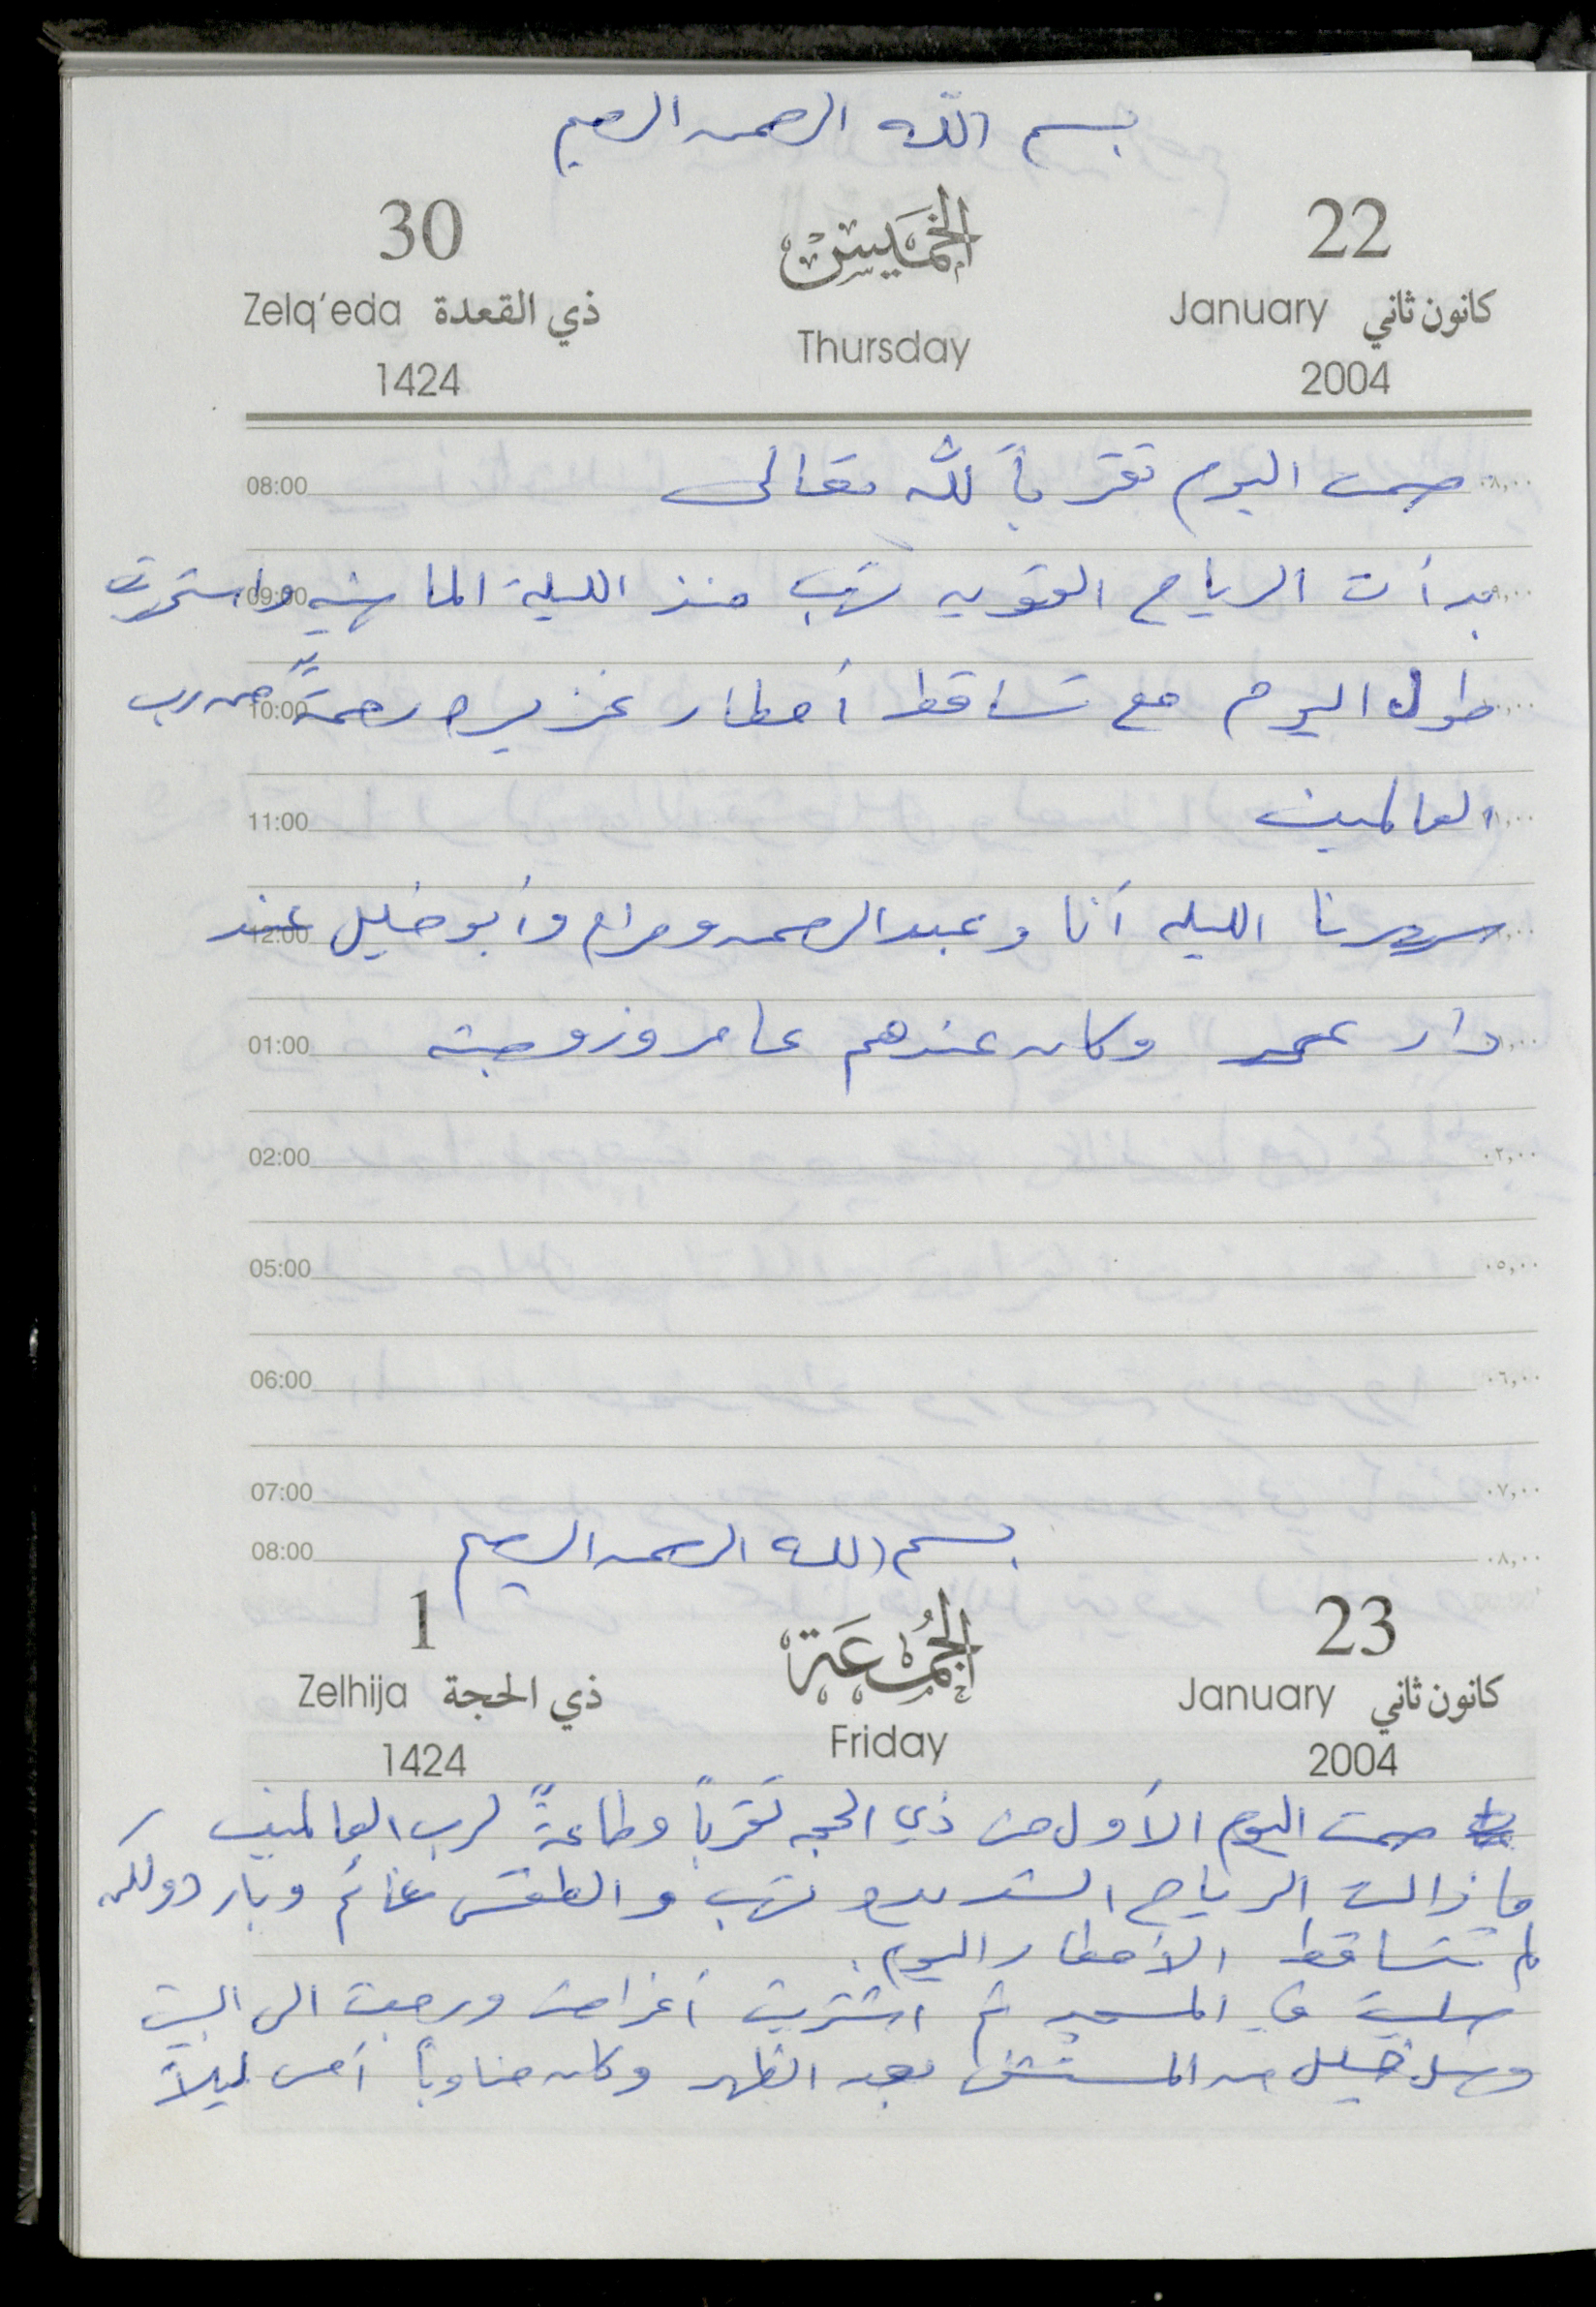 بسم الله الرحمن الرحيم
30 الخميس 22
Zelq'eda ذي القعدة Thursday January كانون ثاني
1424 2004
08:00 صمت اليوم تقرباً لله تعالى ٠٨,٠٠
09:00 بدأت الرياح القويه تهب منذ الليلة الماضيه واستمرت
10:00 طول اليوم مع تساقط أمطار غزيره رحمةً من رب
11:00 العالمين
12:00 سهرنا الليله أنا وعبدالرحمن ومرام وأبو خليل عند
01:00 دار عمر وكان عندهم عامر وزوجته
02:00 ٠٢,٠٠
05:00 ٠٥,٠٠
06:00 ٠٦,٠٠
07:00 ٠٧,٠٠
بسم الله الرحمن الرحيم
08:00 ٠٨,٠٠
1 الجمعة 23
Zelhija ذي الحجة Friday January كانون ثاني
1424 2004
صمت اليوم الأول من ذي الحجه تقرباً وطاعةً لرب العالمين
ما زالت الرياح الشديده تهب والطقس غائم وبارد ولكن
لم تتساقط الأمطار اليوم.
صليت في المسجد ثم اشتريت أغراض ورجعت الى البيت
وصل خليل من المستشفى بعد الظهر وكان مناوباً أمس ليلاً